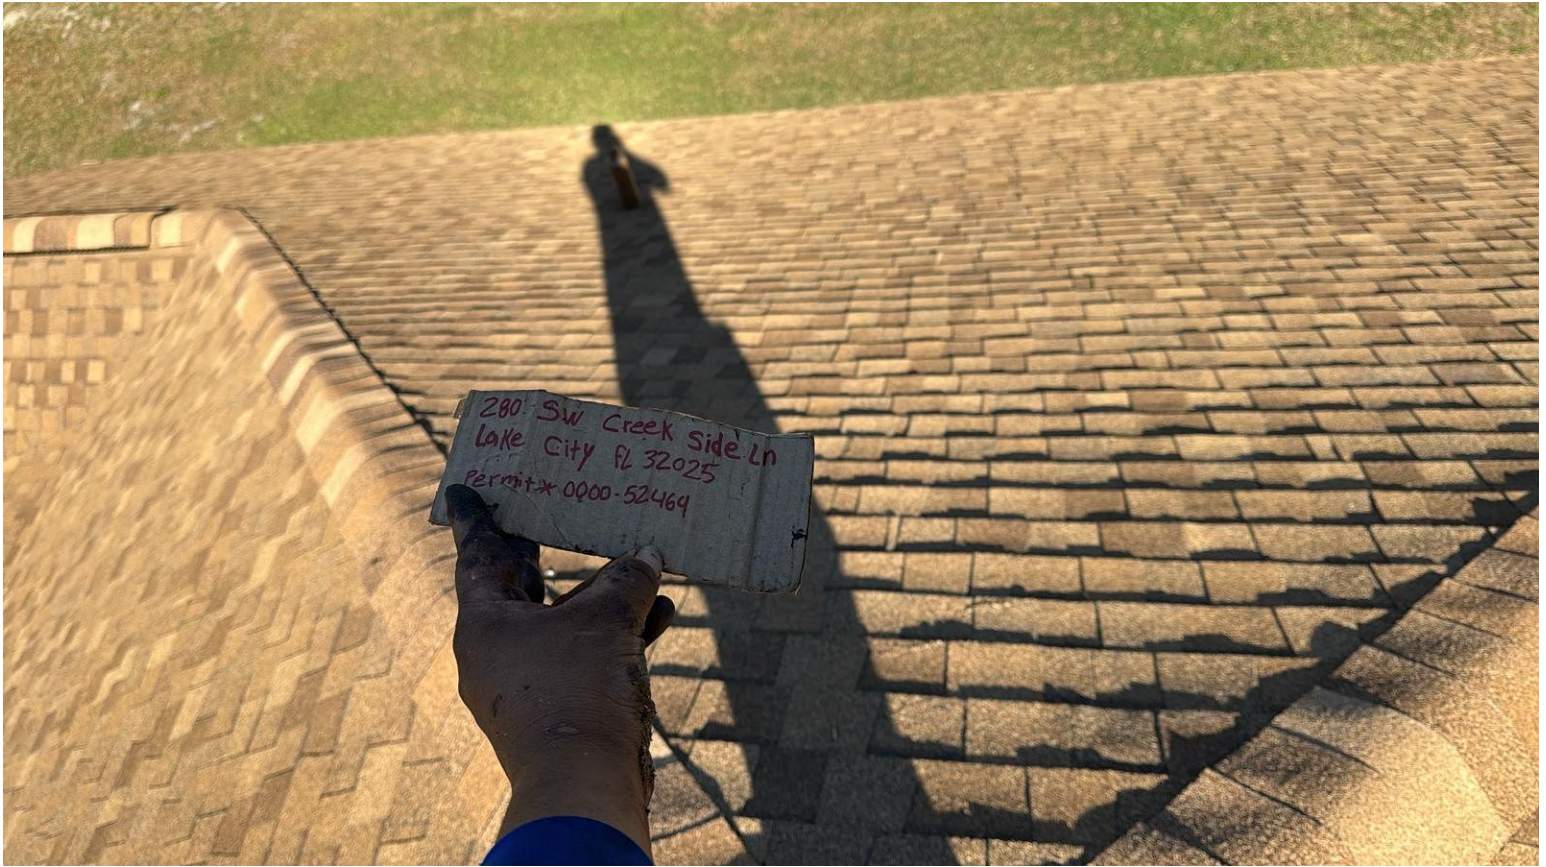 280 SW Creek Side Ln
Lake City FL 32025
Permit* 0000-52464